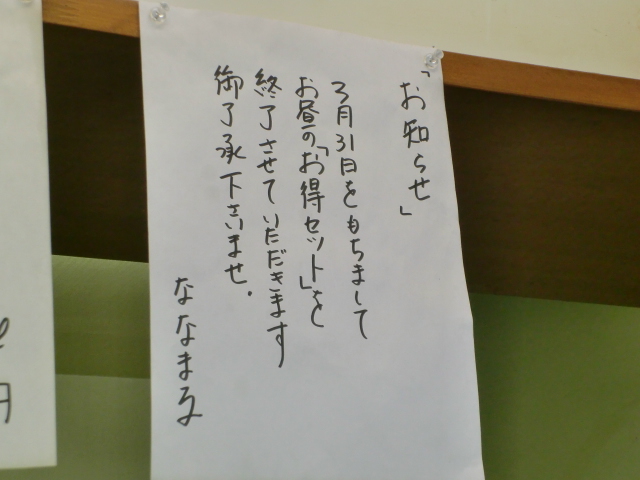 「お知らせ」
3月31日をもちまして
お昼の「お得セット」を
終了させていただきます
御了承下さいませ.
ななまる